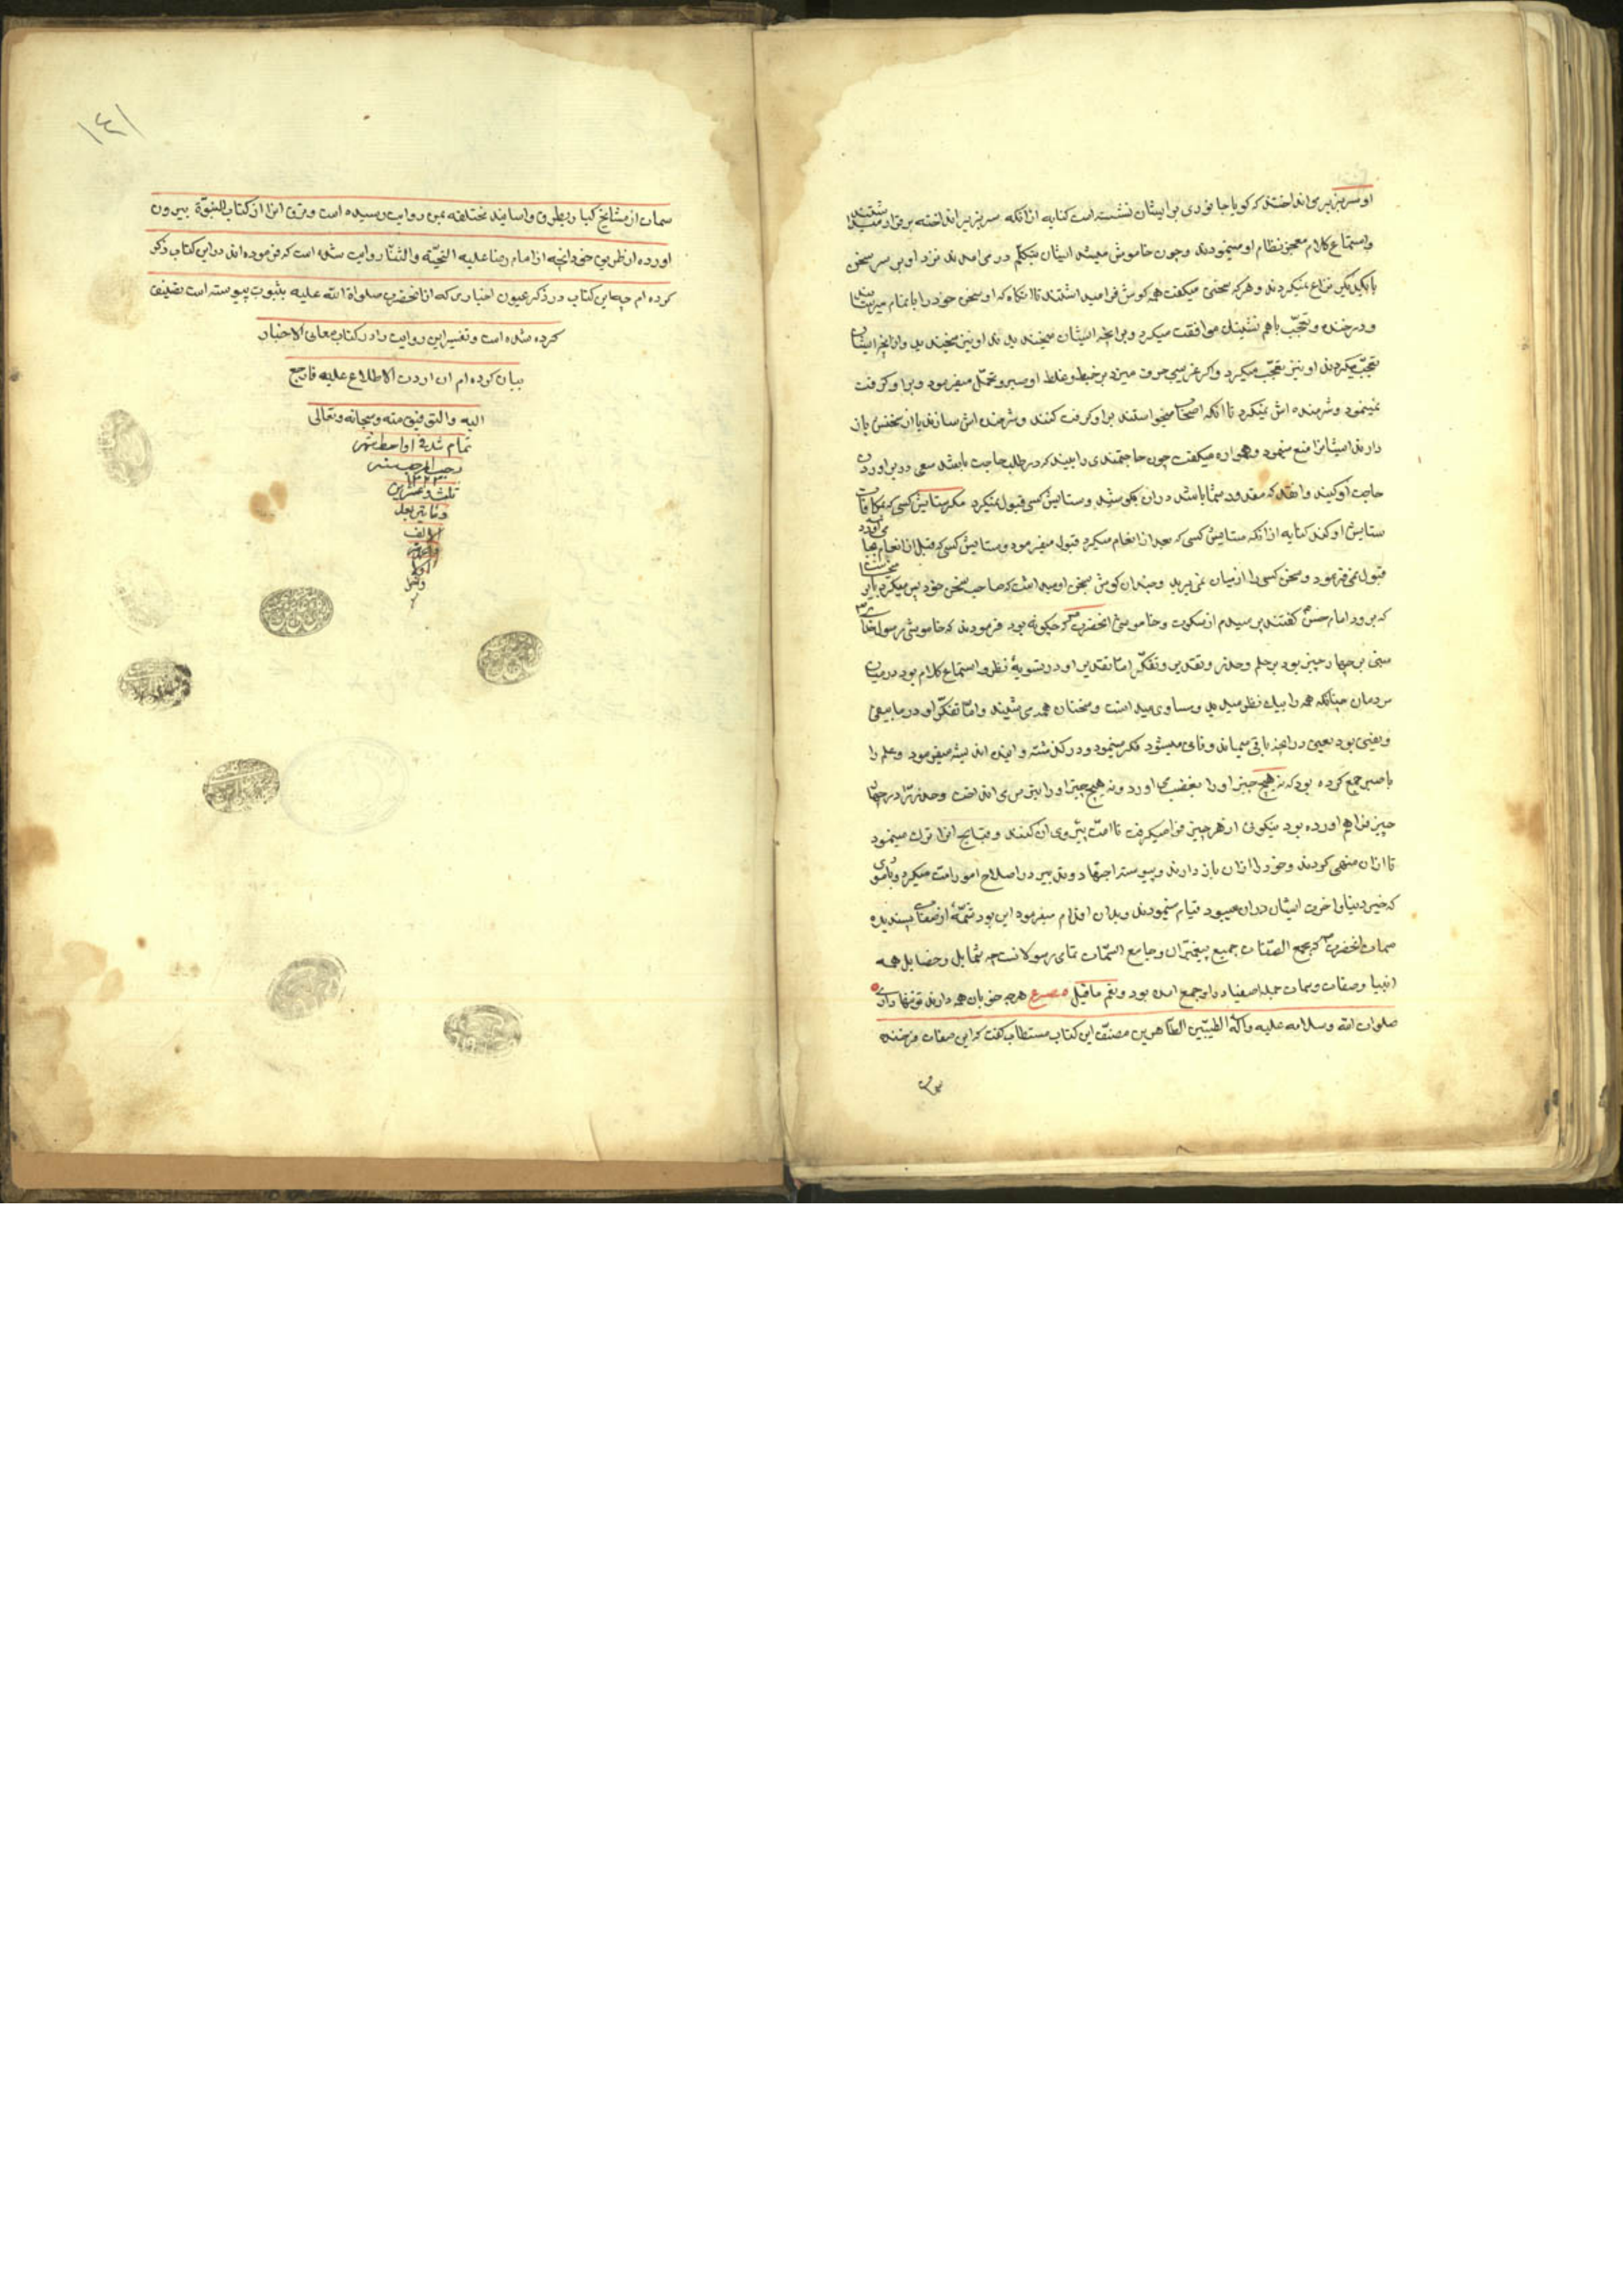 او سر بزیر می انداختند که کویا جانوری بر ایشان نشسته است کنایه از انکه سر بزیر انداخته بی قرار میشدند
و استماع کلام معجز نظام او مینمودند و چون خاموش میشد ایشان بتکلم در می امدند نزد او بر سر سخن
با یکدیکر نزاع نمیکردند و هرکه سخنی میکفت همه کوش فرا میداشتند تا انکاه که او سخن خود را باتمام میرسانید
و در خنده و تعجب با هم نشینان موافقت میکرد و بر انچه ایشان میخندیدند او نیز میخندید و از انچه ایشان
تعجب میکردند او نیز تعجب میکرد و اکر غریبی حرف میزد بر خبط و غلط او صبر و تحمل میفرمود و بر او کرفت
نمینمود و شرمنده اش نمیکرد تا انکه اصحاب میخواستند بر او کرفت کنند و شرمنده اش سازند یا از سخنش باز
دارند ایشانرا منع مینمود و همواره میکفت چون حاجتمندی را ببیند که در طلب حاجت باشد سعی در براوردن
حاجت او کنید و انقدر که مقدور شما باشد در ان بکوشید و ستایش کسی قبول نمیکرد مکر ستایش کسی که مکافات
ستایش او کند کنایه از انکه ستایش کسی که بعد از انعام میکرد قبول میفرمود و ستایش کسی که قبل از انعام بجا می آورد
قبول نمی فرمود و سخن کسی را از میان نمی برید و چندان کوش بسخن او میداشت که صاحب سخن خود بس میکرد یا بر میخاست
که برود امام حسن کفتند پرسیدم از سکوت و خاموشی انحضرت که چکونه بود فرمودند که خاموشی رسول خدا
مبنی بر چهار چیز بود بر حلم و حذر و تقدیر و تفکر اما تقدیر او در تسویهٔ نظر و استماع کلام بود در میان
مردمان چنانکه همه را بیک نظر میدید و مساوی میداشت و سخنان همه می شنید و اما تفکر او در ما یبقی
و یفنی بود یعنی در انچه باقی میماند و فانی میشود فکر مینمود و در کذشته و اینده اندیشه میفرمود و حلم را
با صبر جمع کرده بود که نه هیچ چیز او را بغضب می اورد و نه هیچ چیز او را می انداخت و حذر را در چهار
چیز فراهم اورده بود نیکوئی از هر چیز فرا میکرفت تا امت پیروی ان کنند و قبایح انرا ترک مینمود
تا از ان منهی کردند و خود را از ان باز دارند و پیوسته اجتهاد و تدبیر در اصلاح امور امت میکرد و بامری
که خیر دنیا و اخرت ایشان در ان میبود قیام مینمودند و بدان اقدام میفرمود این بود تتمهٔ از صفات پسندیده
سمات انحضرت که مجمع الصفات جمیع پیغمبران و جامع السمات تمامی رسولانست چه شمایل و خصایل همه
انبیا و صفات و سمات جمله اصفیا در او جمع امده بود و نعم ما قیل مصرع هرچه خوبان همه دارند تو تنها داری
صلوات الله و سلامه علیه و آله الطیبین الطاهرین مصنف این کتاب مستطاب کفت که این صفات فرخنده
سمات از مشایخ کبار بطرق و اسانید مختلفه بمن روایت رسیده است و من انرا از کتاب النبوة بیرون
اورده از طریق خود انچه از امام رضا علیه التحیة والثنا روایت شده است که فرموده اند در این کتاب ذکر
کرده ام چه این کتاب در ذکر عیون اخباری که از انحضرت صلواة الله علیه بثبوت پیوسته است تصنیف
کرده شده است و تفسیر این روایت را در کتاب معانی الاخبار
بیان کرده ام ان اردت الاطلاع علیه فارجع
الیه والتوفیق منه سبحانه وتعالی
تمام شد فی اواسط شهر
رجب المرجب سنه
۱۲۲۳
ثلث و عشرین
و مائتین بعد
الالف
۱۴۱